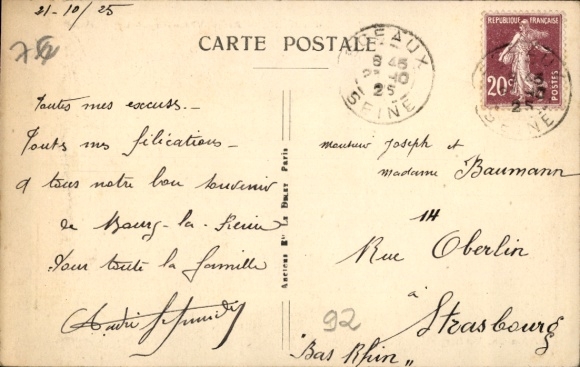 21-10/25
CARTE POSTALE
SCEAUX
8 45
21-10
25
SEINE
REPUBLIQUE FRANÇAISE
20c
POSTES
Toutes mes excuses.-
Touts mes félications -
à tous notre bon souvenir
de Bourg-la-Reine
Pour toute la famille
Anciens Ets Le Deley Paris
Monsieur Joseph et
Madame Baumann
14
Rue Oberlin
à
Strasbourg
"Bas Rhin"
92